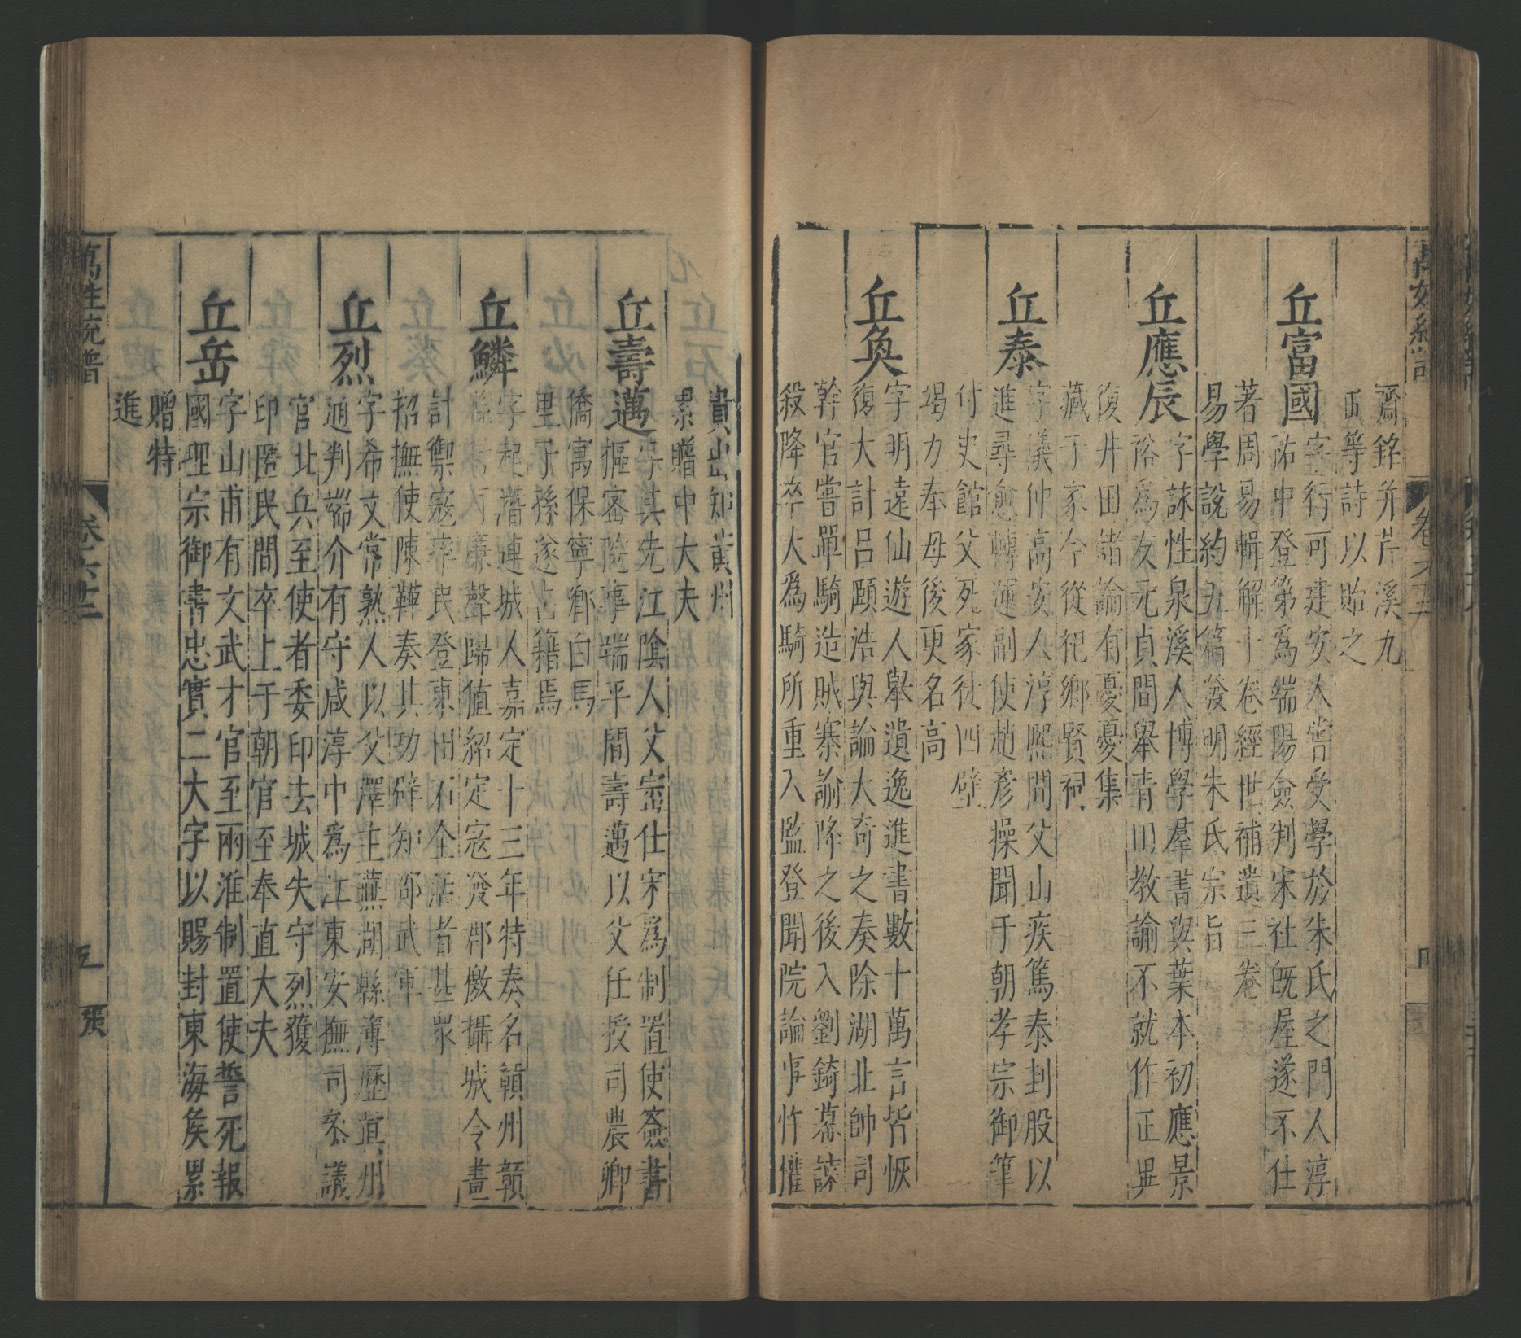 齋銘并芹溪九
曲等詩以貽之
丘富國
字行可建安人嘗受學於朱氏之門人淳
祐中登第爲端陽僉判宋社旣屋遂不仕
著周易輯解十卷經世補遺三卷
易學說約五篇發明朱氏宗旨
丘應辰
字詠性泉溪人博學羣書與葉本初應景
裕爲友元貞間舉青田教諭不就作正異
復井田諸論有憂憂集
藏于家今從祀鄉賢祠
丘泰
字儀仲高安人淳熙間父山疾篤泰刲股以
進尋愈轉運副使趙彥操聞于朝孝宗御筆
付史館父死家徒四壁
竭力奉母後更名高
丘奐
字明遠仙遊人舉遺逸進書數十萬言皆恢
復大計呂頤浩與論大奇之奏除湖北帥司
幹官嘗單騎造賊寨諭降之後入劉錡幕諱
殺降卒大爲騎所重入監登聞院論事忤權
貴出知黃州
累贈中大夫
丘壽邁
字其先江陰人父崈仕宋爲制置使簽書
樞密院事端平間壽邁以父任授司農卿
僑寓保寧鄉白馬
里子孫遂占籍焉
丘鱗
字起潛連城人嘉定十三年特奏名贛州贛
縣 聲歸值紹定寇發郡儌攝城令畫
計禦寇率民登東 石全活者甚衆
招撫使陳韡奏其功辟知邵武軍
丘烈
字希文常熟人以父澤主蕪湖縣簿歷眞州
通判端介有守咸淳中爲江東安撫司叅議
官北兵至使者委印去城失守烈獲
印匿民間卒上于朝官至奉直大夫
丘岳
字山甫有文武才官至兩淮制置使誓死報
國理宗御書忠實二大字以賜封東海矦累
贈特
進
萬姓統譜
卷六十三
五